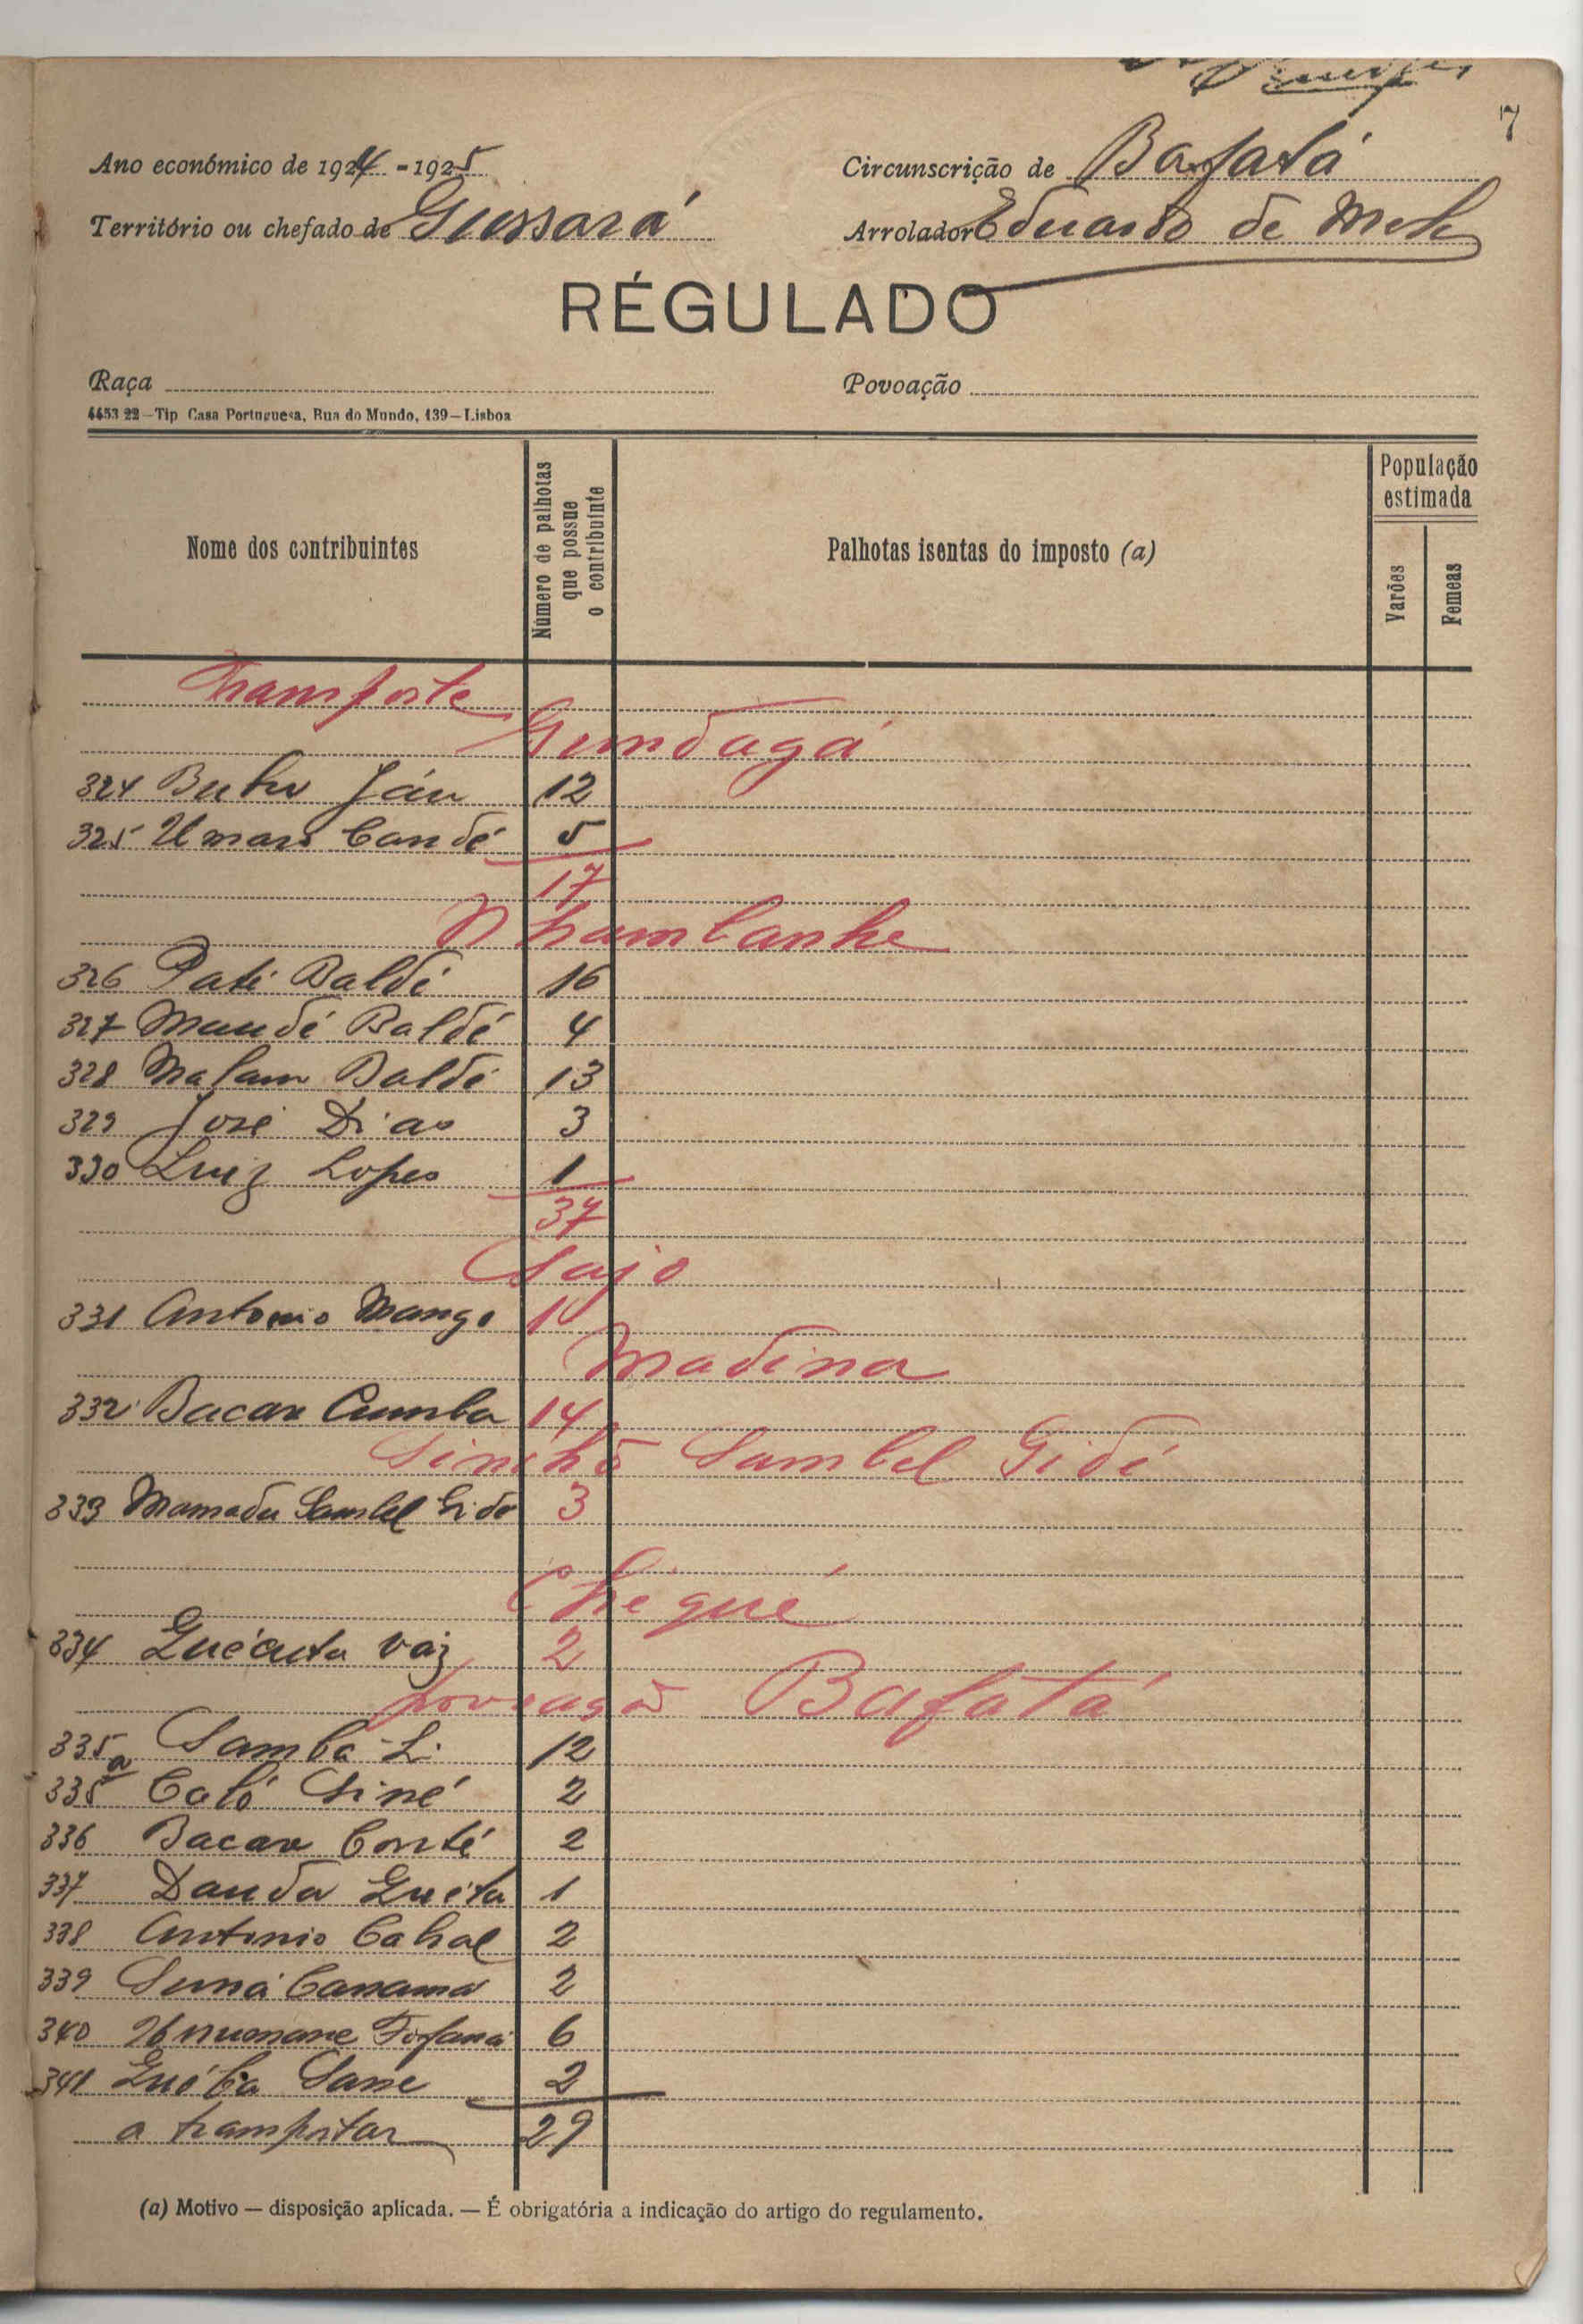 7
Ano económico de 1924-1925
Circunscrição de Bafatá
Território ou chefado de Gussará
Arrolador Eduardo de Melo
RÉGULADO
Raça
Povoação
4453 22—Tip Casa Portuguesa, Rua do Mundo, 139—Lisboa
Nome dos contribuintes
Número de palhotas que possue o contribuinte
Palhotas isentas do imposto (a)
População estimada
Varões
Femeas
Transporte
Gundagá
324 Jáu 12
325 Umaro Candé 5
17
Nhambanhe
326 Pati Baldé 16
327 Maudé Baldé 4
328 Malam Baldé 13
329 José Dias 3
330 Luiz Lopes 1
37
Sajo
331 Antonio Mango 1
Madina
332 Bacar Cumba 14
Sinchõ Sambel Gidé
333 Mamadu Sambel Gido 3
Chegué
334 Quécuta Vaz 2
Povoação Bafatá
335 Samba Li 12
335a Caló Siné 2
336 Bacar Conté 2
337 Dauda Queita 1
338 Antonio Cabral 2
339 Suná Camama 2
340 Fofaná 6
341 Québa Sane 2
a transportar 29
(a) Motivo — disposição aplicada. — É obrigatória a indicação do artigo do regulamento.